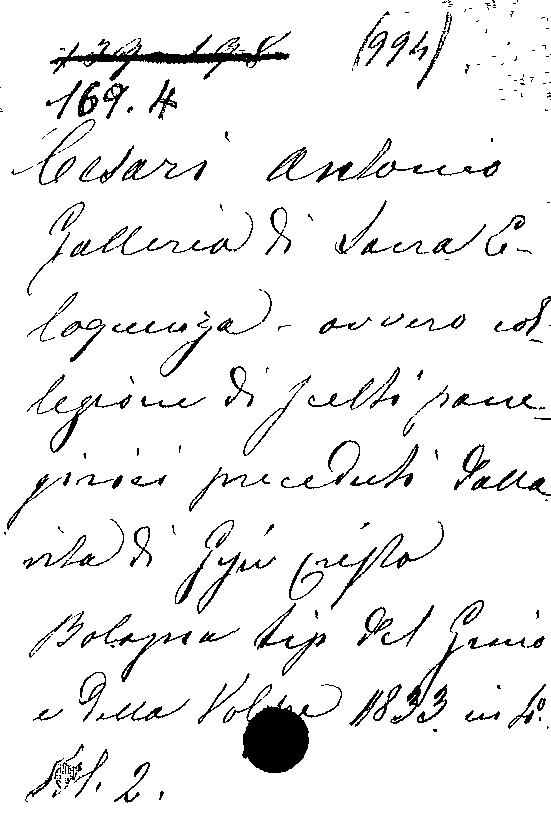 139-198 (994)
169.4
Cesari Antonio
Galleria di Sacra E-
loquenza - ovvero col-
legione di scelti pane-
girici preceduti dalla
vita di Gesù Cristo
Bologna tip del Genio
e della Volpe 1833 in 4º.
Vol. 2.